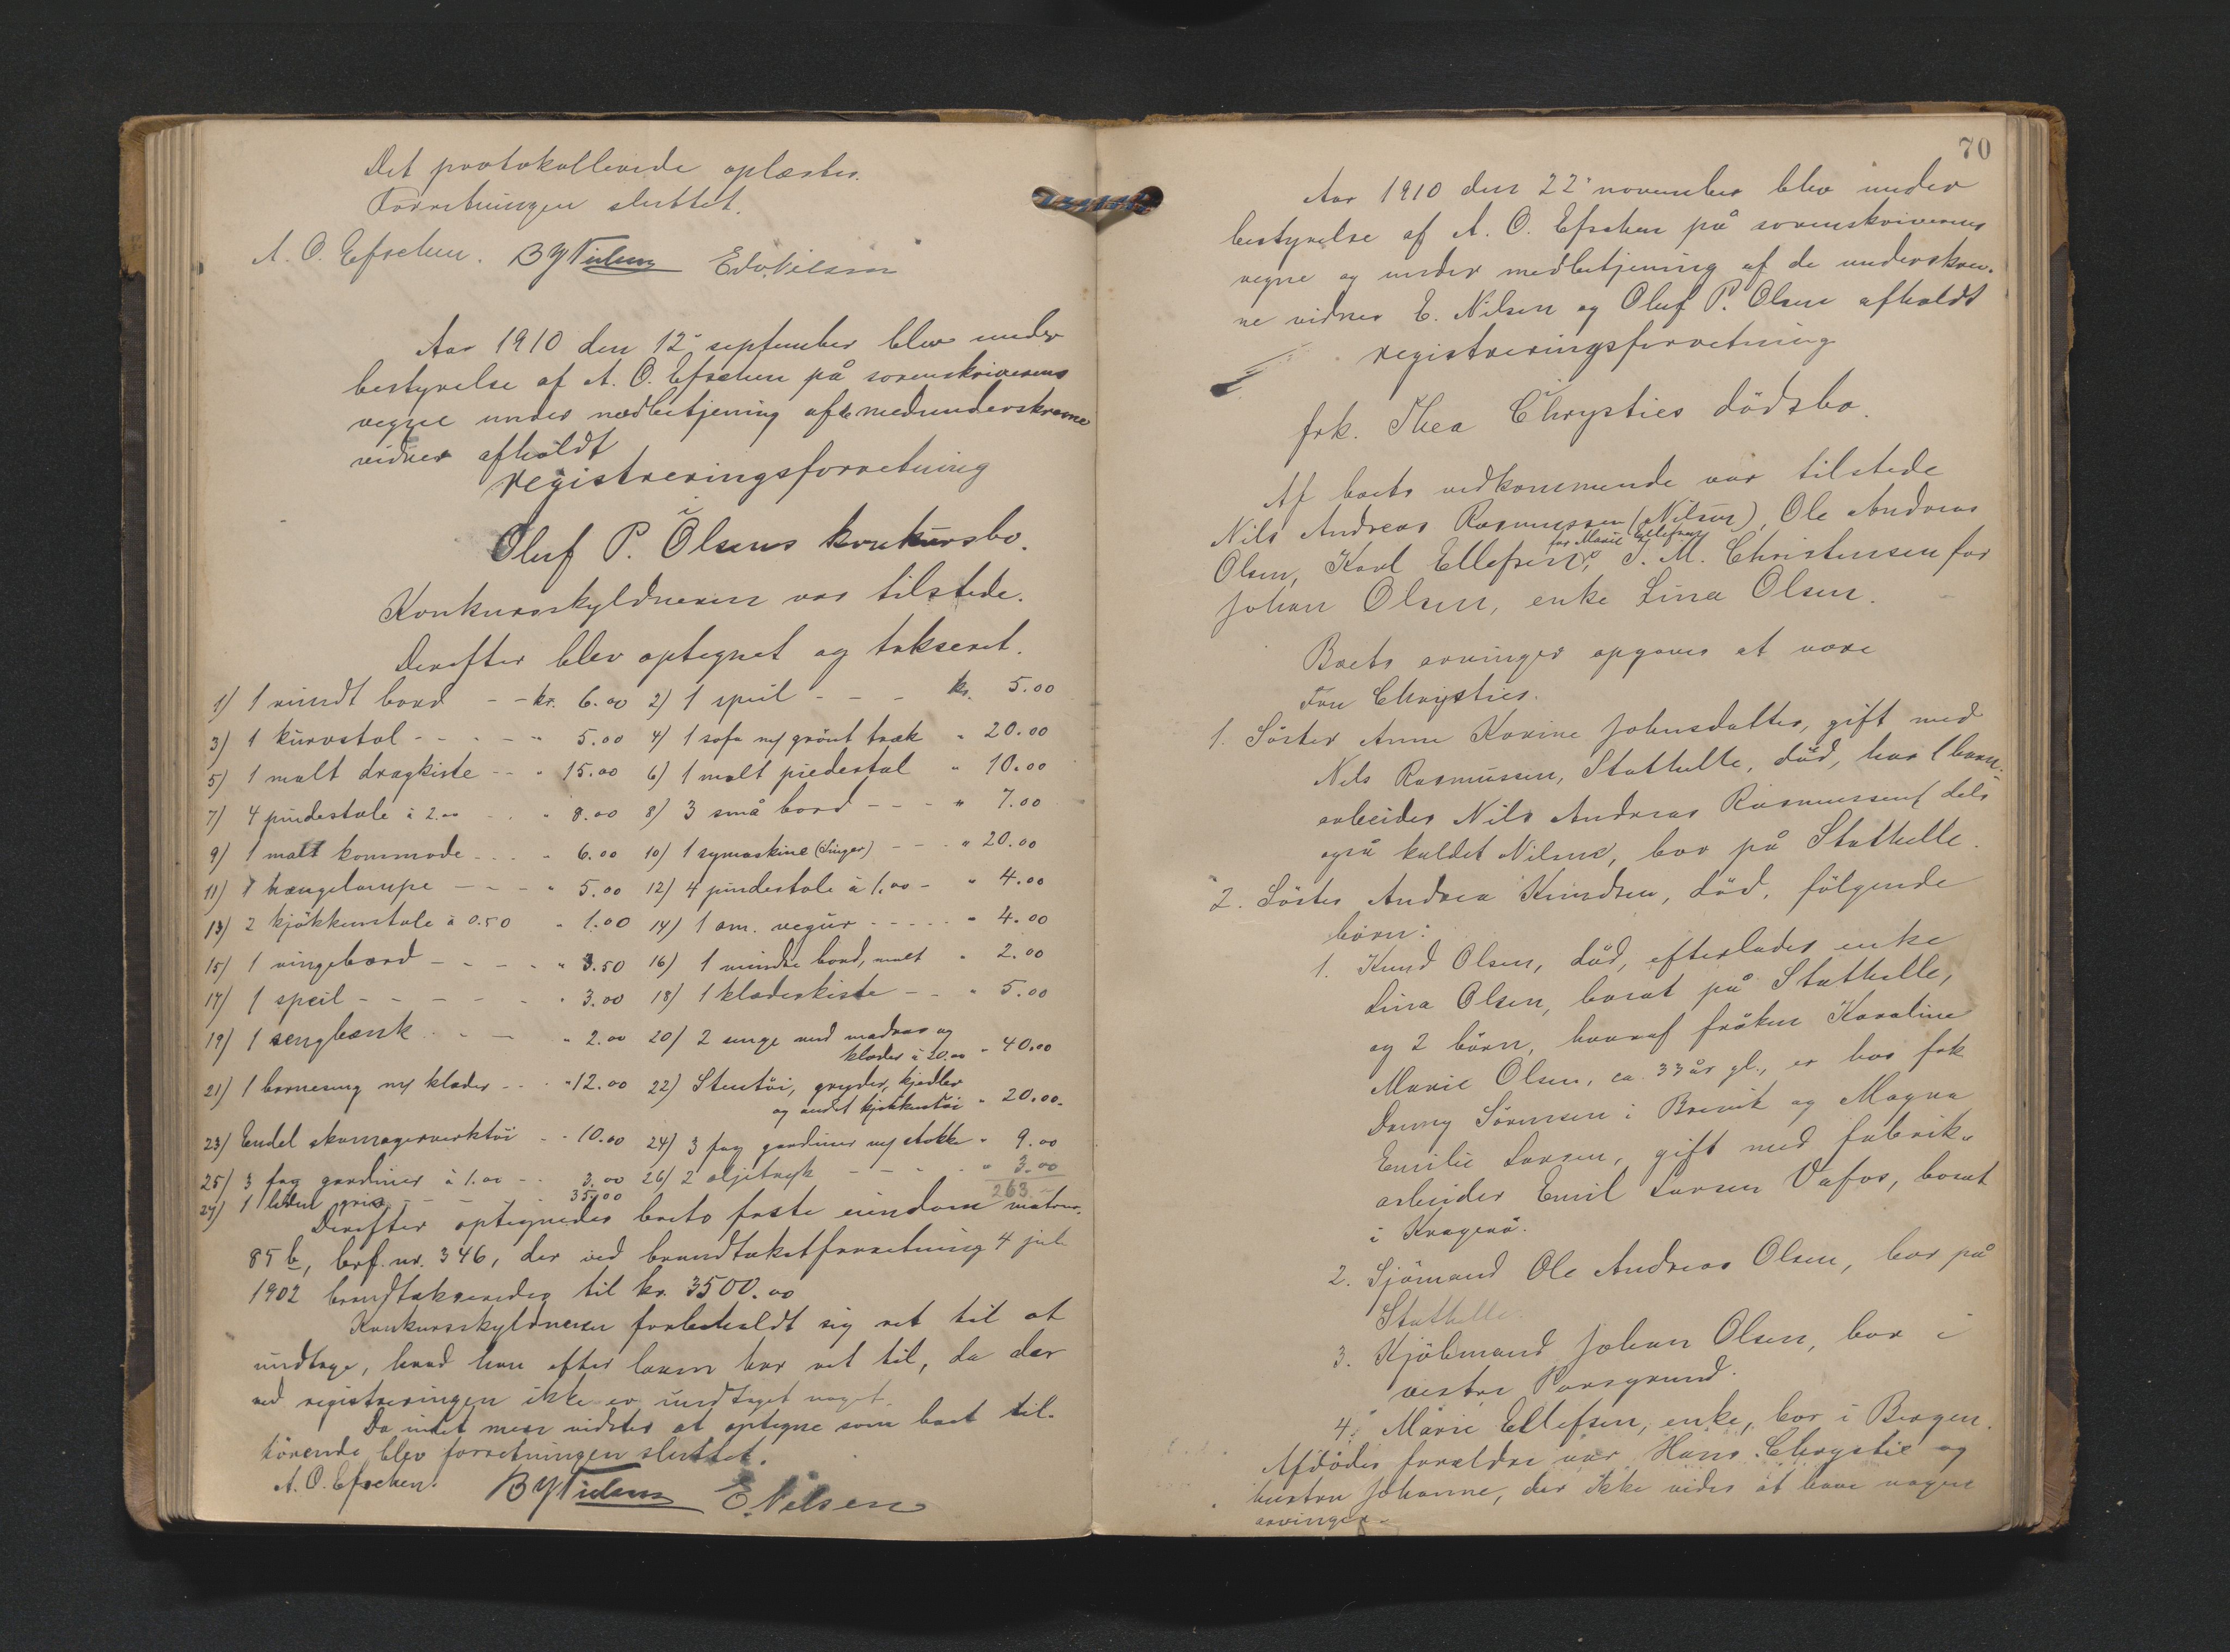 Det protokollerede oplæstes.
Forretningen sluttet.
A. O. Efschen. B Y Nielsen Edv. Nilsen
Aar 1910 den 12' september blev under
bestyrelse af A. O. Efschen på sorenskriverens
vegne under medbetjening af de medunderskrevne
vidner afholdt
registreringsforretning
i
Oluf P. Olsens konkursbo.
Konkursskyldneren var tilstede.
Derefter blev optegnet og takseret.
1) 1 rundt bord - - kr. 6.00 2) 1 speil - - - kr. 5.00
3) 1 kurvstol - - - - " 5.00 4) 1 sofa m/ grönt træk " 20.00
5) 1 malt dragkiste - - " 15.00 6) 1 malt piedestal " 10.00
7) 4 pindestole à 2.00 - - " 8.00 8) 3 små bord - - - " 7.00
9) 1 malt kommode - - - " 6.00 10) 1 symaskine (Singer) - - - " 20.00
11) 1 hængelampe - - - " 5.00 12) 4 pindestole à 1.00 - " 4.00
13) 2 kjökkenstole à 0.50 " 1.00 14) 1 am. vegur - - - - " 4.00
15) 1 vingebord - - - - " 3.50 16) 1 mindre bord, malt " 2.00
17) 1 speil - - - - - " 3.00 18) 1 klædeskiste - - " 5.00
19) 1 sengbænk - - - " 2.00 20) 2 senge med madras og
klæder à 20.00 " 40.00
21) 1 barneseng m/ klæder - - " 12.00 22) Stentöi, gryder, kjedler
og andet kjökkentöi " 20.00
23) Endel skomagerverktöi - " 10.00 24) 3 fag gardiner m/ stokke " 9.00
25) 3 fag gardiner à 1.00 - - 3.00 26) 2 oljetryk - - - - " 3.00
27) 1 liden gris - - - - 35.00 263.
Derefter optegnedes boets faste eiendom matrnr.
85 b, brf. nr. 346, der ved brandtakstforretning 4 juli
1902 brandtakseredes til kr. 3500.00
Konkursskyldneren forbeholdt sig ret til at
undtage, hvad han efter loven har ret til, da der
ved registreringen ikke er undtaget noget.
Da intet mere vidstes at optegne som boet til-
hörende, blev forretningen sluttet.
A. O. Efschen. B Y Nielsen E. Nilsen
70
Aar 1910 den 22' november blev under
bestyrelse af A. O. Efschen på sorenskriverens
vegne og under medbetjening af de underskrev-
ne vidner E. Nilsen og Oluf P. Olsen afholdt
registreringsforretning
i
frk. Thea Chrysties dödsbo.
Af boets vedkommende var tilstede
Nils Andreas Rasmussen (Nilsen), Ole Andreas
for Marie Ellefsen
Olsen, Karl Ellefsen, J. M. Christensen for
Johan Olsen, enke Lina Olsen.
Boets arvinger opgaves at være
Frk Chrysties.
1. Söster Anne Karine Johnsdatter, gift med
Nils Rasmussen, Stathelle, död, har 1 barn:
arbeider Nils Andreas Rasmussen, dels
også kaldet Nilsen, bor på Stathelle.
2. Söster Andrea Knudsen, död, fölgende
börn:
1. Knud Olsen, död, efterlader enke
Lina Olsen, bosat på Stathelle,
og 2 börn, hvoraf fröken Karoline
Marie Olsen, ca. 33 år gl., er hos frk
Danny Sörensen i Brevik og Magna
Emilie Larsen, gift med fabrik-
arbeider Emil Larsen Vafos, bosat
i Kragerö.
2. Sjömand Ole Andreas Olsen, bor på
Stathelle.
3. Kjöbmand Johan Olsen, bor i
vestre Porsgrund.
4. Marie Ellefsen, enke, bor i Bergen.
Afdödes forældre var Hans Chrystie og
hustru Johanne, der ikke vides at have nogen
arvinger.